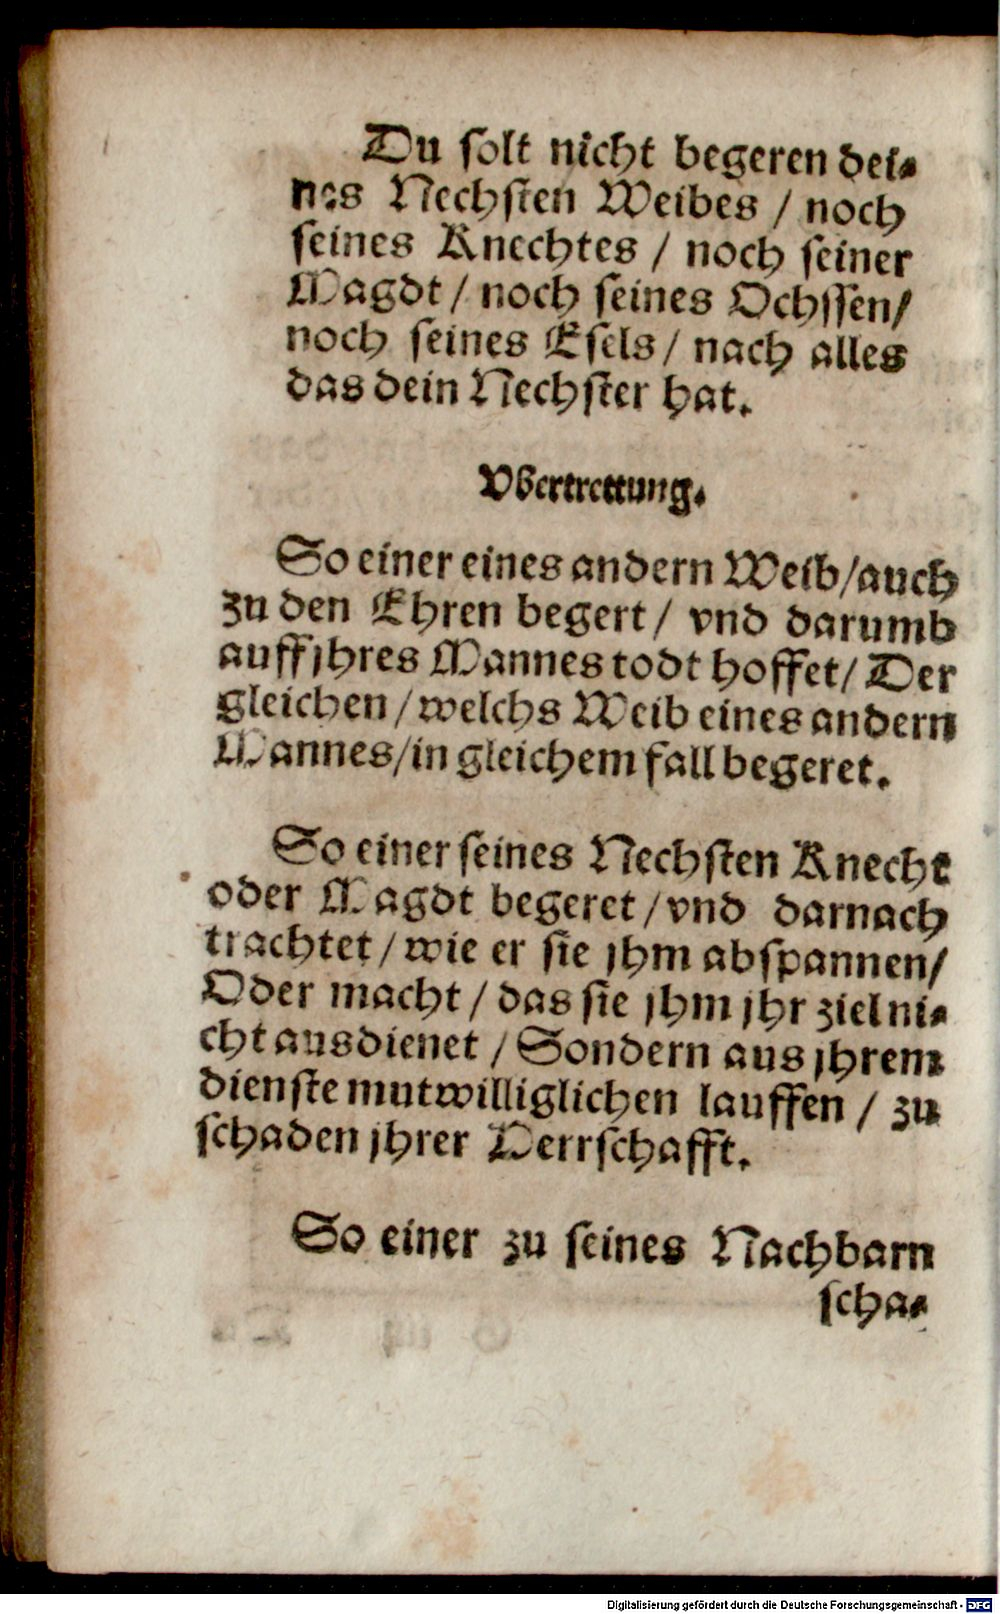 Du solt nicht begeren dei⸗
nes Nechsten Weibes / noch
seines Knechtes / noch seiner
Magdt / noch seines Ochssen/
noch seines Esels / nach alles
das dein Nechster hat.
Vbertrettung.
So einer eines andern Weib/auch
zu den Ehren begert / vnd darumb
auff jhres Mannes todt hoffet/ Der
gleichen / welchs Weib eines andern
Mannes/in gleichem fall begeret.
So einer seines Nechsten Knecht
oder Magdt begeret / vnd darnach
trachtet / wie er sie jhm abspannen/
Oder macht / das sie jhm jhr ziel ni⸗
cht ausdienet / Sondern aus jhrem
dienste mutwilliglichen lauffen / zu
schaden jhrer Herrschafft.
So einer zu seines Nachbarn
scha⸗
Digitalisierung gefördert durch die Deutsche Forschungsgemeinschaft - DFG